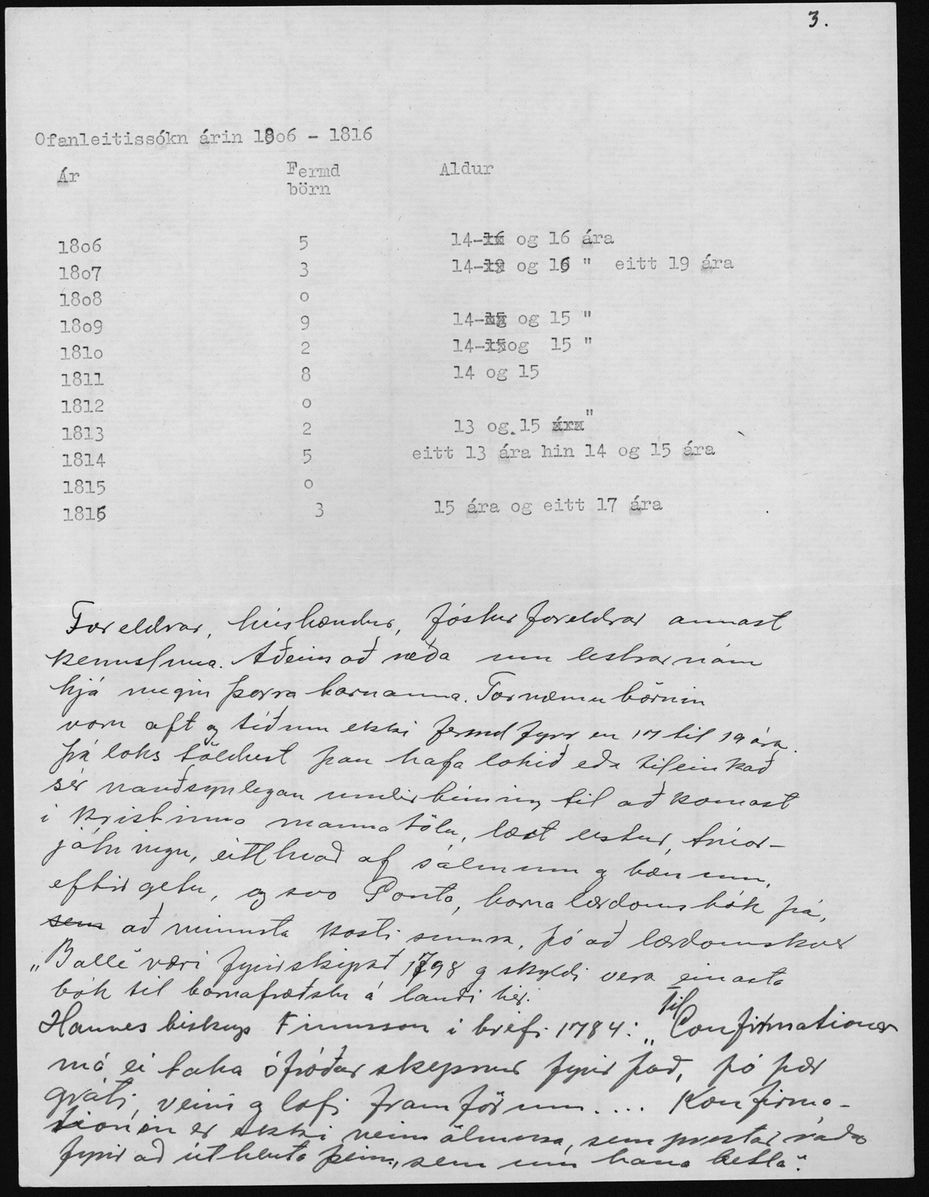 3.
Ofanleitissókn árin 18o6 - 1816
Ár Fermd börn Aldur
18o6 5 14- og 16 ára
18o7 3 14- og 16 " eitt 19 ára
18o8 o
18o9 9 14- og 15 "
181o 2 14- og 15 "
1811 8 14 og 15
1812 o
1813 2 13 og 15 "
1814 5 eitt 13 ára hin 14 og 15 ára
1815 o
1816 3 15 ára og eitt 17 ára
Foreldrar, húsbændur, fósturforeldrar annast
kennsluna. Aðeins að ræða um lestrarnám
hjá megin þorra barnanna. Tornæmu börnin
voru oft og tíðum ekki fermd fyrr en 17 til 19 ára.
Þá loks töldust þau hafa lokið eða tileinkað
sér nauðsynlegan undirbúning til að komast
í kristinna manna tölu, lært lestur, trúar-
játningu, eitthvað af sálmum og bænum,
eftir getu, og svo Ponta, barnalærdómsbók þá,
sem að minnsta kosti sumra, þó að lærdómskver
"Balle væri fyrirskipað 1798 og skyldi vera einasta
bók til barnafræðslu á landi hér.
Hannes biskup Finnsson í bréfi 1784: "til Confirmationer
má ei taka ófróðar skepnur fyrir það, þó þær
gráti, veini og lofi framförum .... Konfirma-
tionin er ekki nein ölmusa, sem prestar ráða
fyrir að úthluta þeim, sem um hana betla".